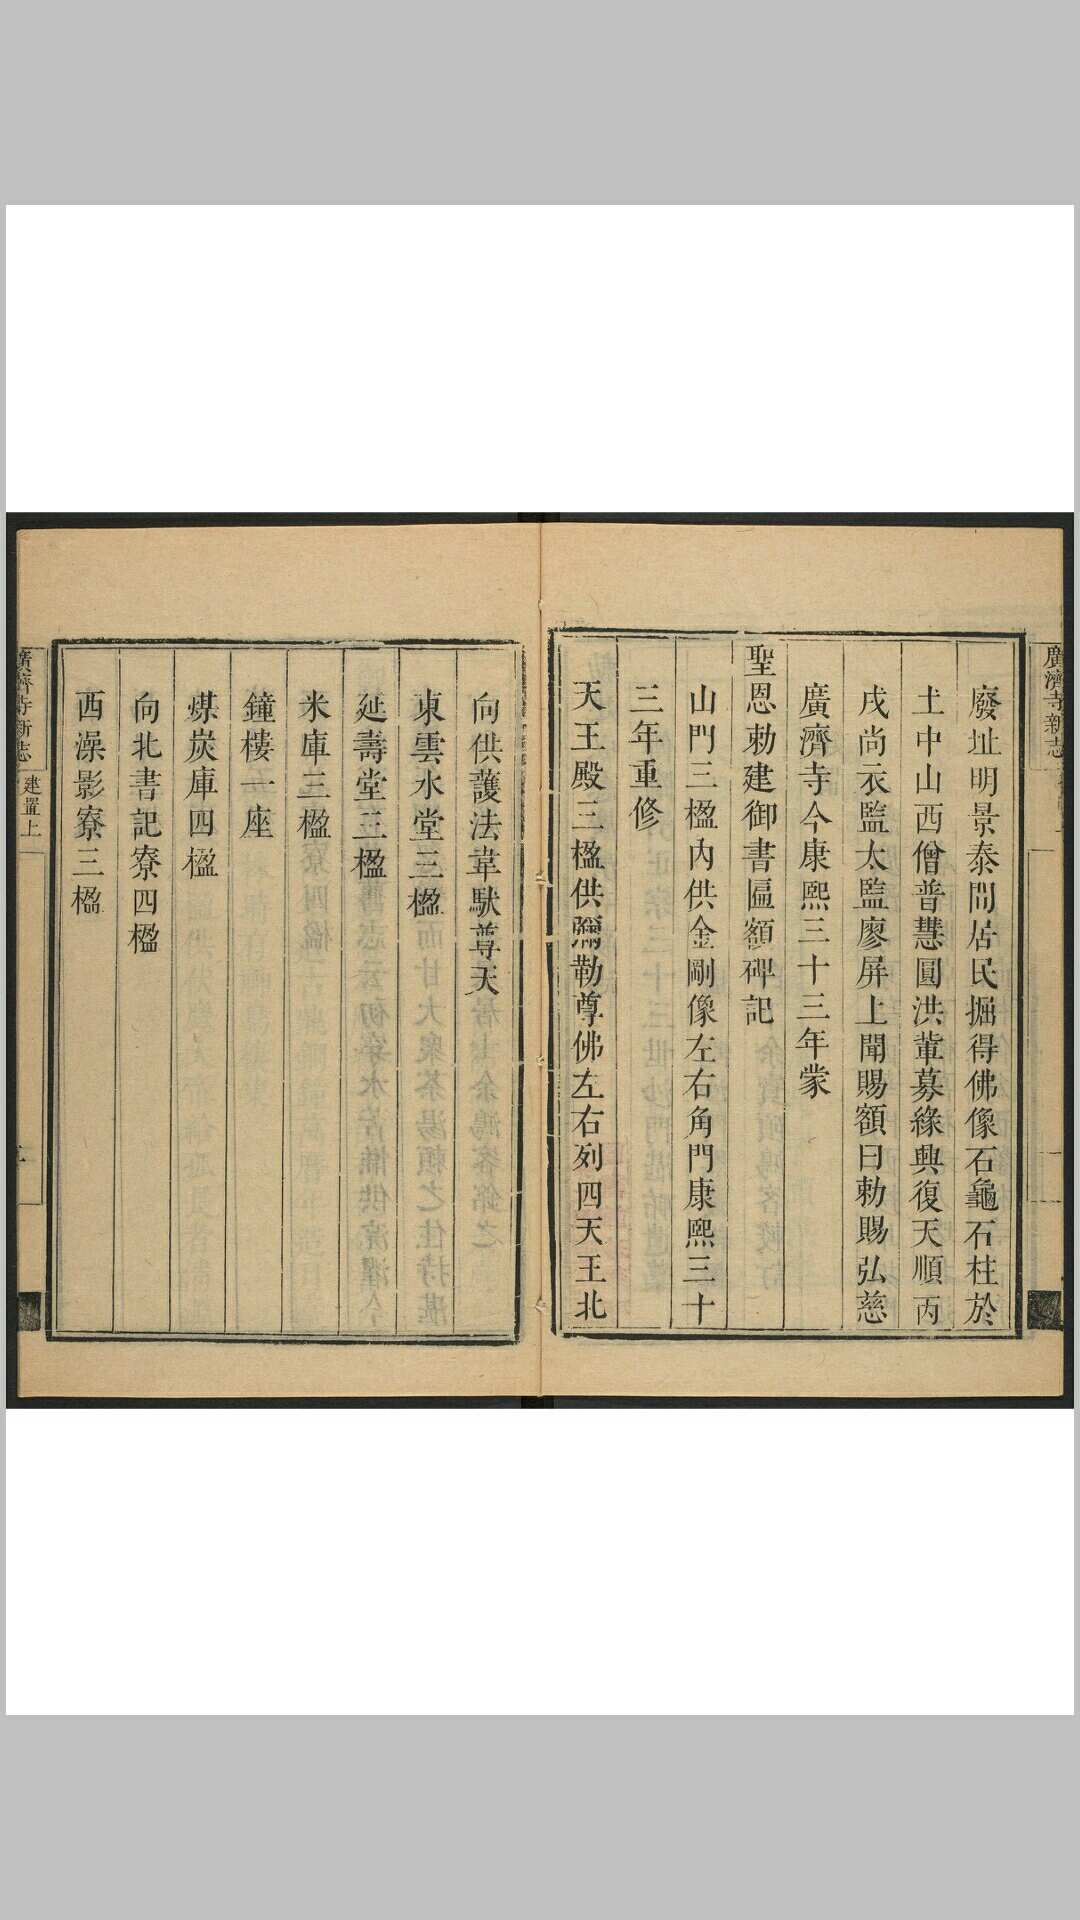 廣濟寺新志
廢址明景泰間居民掘得佛像石龜石柱於
土中山西僧普慧圓洪軰募緣興復天順丙
戌尚衣監太監廖屏上聞賜額曰勅賜弘慈
廣濟寺今康熙三十三年蒙
聖恩勅建御書匾額碑記
山門三楹內供金剛像左右角門康熙三十
三年重修
天王殿三楹供彌勒尊佛左右列四天王北
向供護法韋馱尊天
東雲水堂三楹
延壽堂三楹
米庫三楹
鐘樓一座
煤炭庫四楹
向北書記寮四楹
西澡影寮三楹
廣濟寺新志
建置上